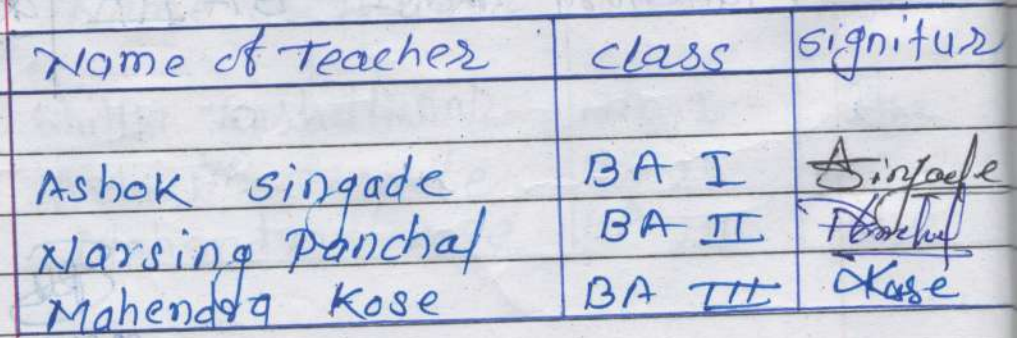 Name of Teacher class signitur
Ashok singade BA I Singade
Narsing Panchal BA II Panchal
Mahendra Kose BA III Kose